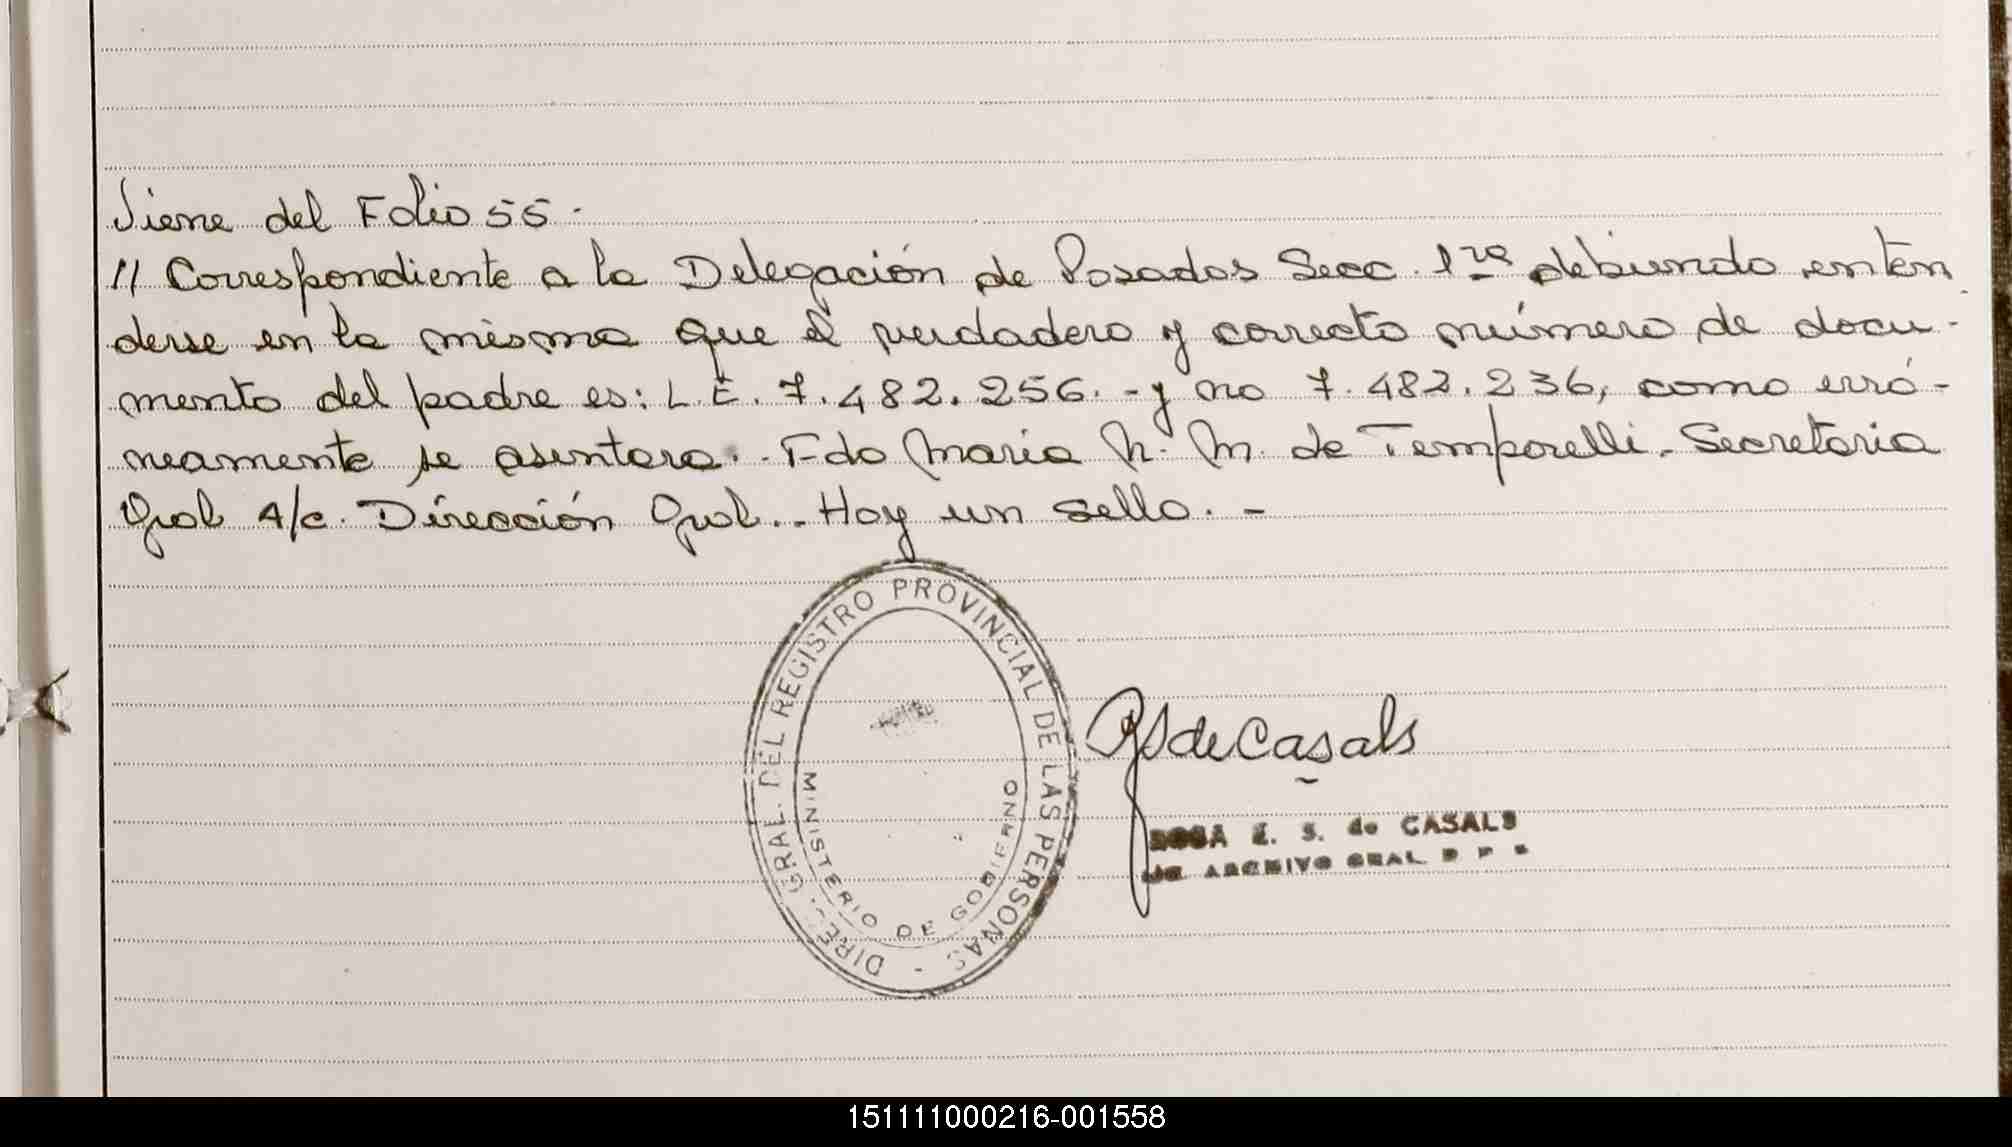 Viene del Folio 55.
// Correspondiente a la Delegación de Posadas Secc. 1ra debiendo enten
derse en la misma que el verdadero y correcto número de docu-
mento del padre es: L.E. 7.482.256.- y no 7.482.236, como erró-
neamente se asentara.- Fdo María N. M. de Temporelli. Secretaria
Gral A/c. Dirección Gral.. Hay un sello. -
DIREC. GRAL. DEL REGISTRO PROVINCIAL DE LAS PERSONAS -
MINISTERIO DE GOBIERNO
RS de Casals
ROSA E. S. de CASALS
ARCHIVO GRAL R P P
151111000216-001558